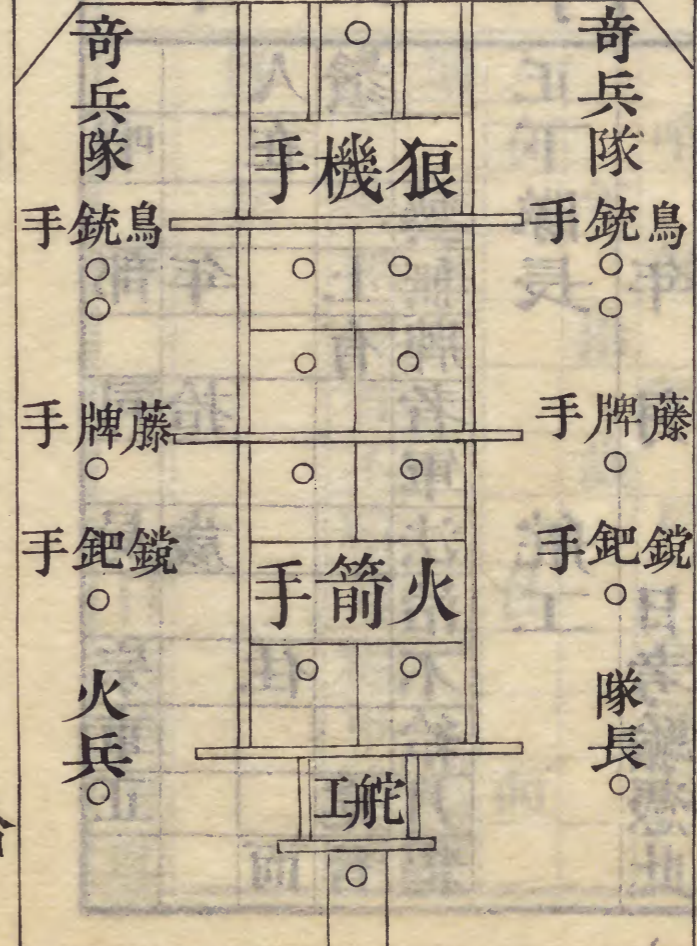 竒兵隊
鳥銃手
○
○
藤牌手
○
鏜鈀手
○
隊長
○
○
狠機手
○ ○
○ ○
○ ○
火箭手
○ ○
舵工
○
竒兵隊
鳥銃手
○
○
藤牌手
○
鏜鈀手
○
火兵
○